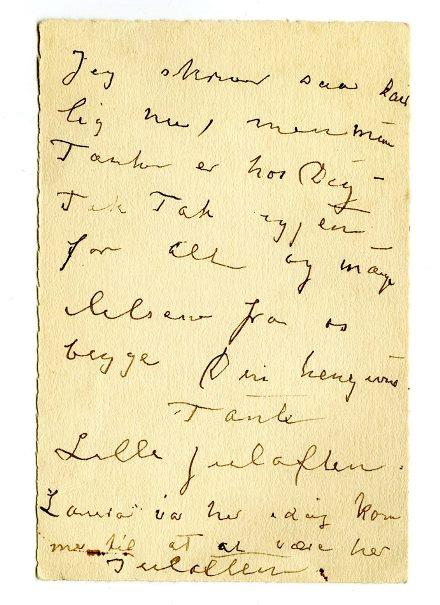 Jeg skriver saa daar
lig nu, men mine
Tanker er hos Dig –
Tak Tak igjen
for alt og mange
hilsener fra os
begge Din hengivne
Tante
Lille Juleaften.
Laura var her idag kom
mer til at være her
Juleaften.